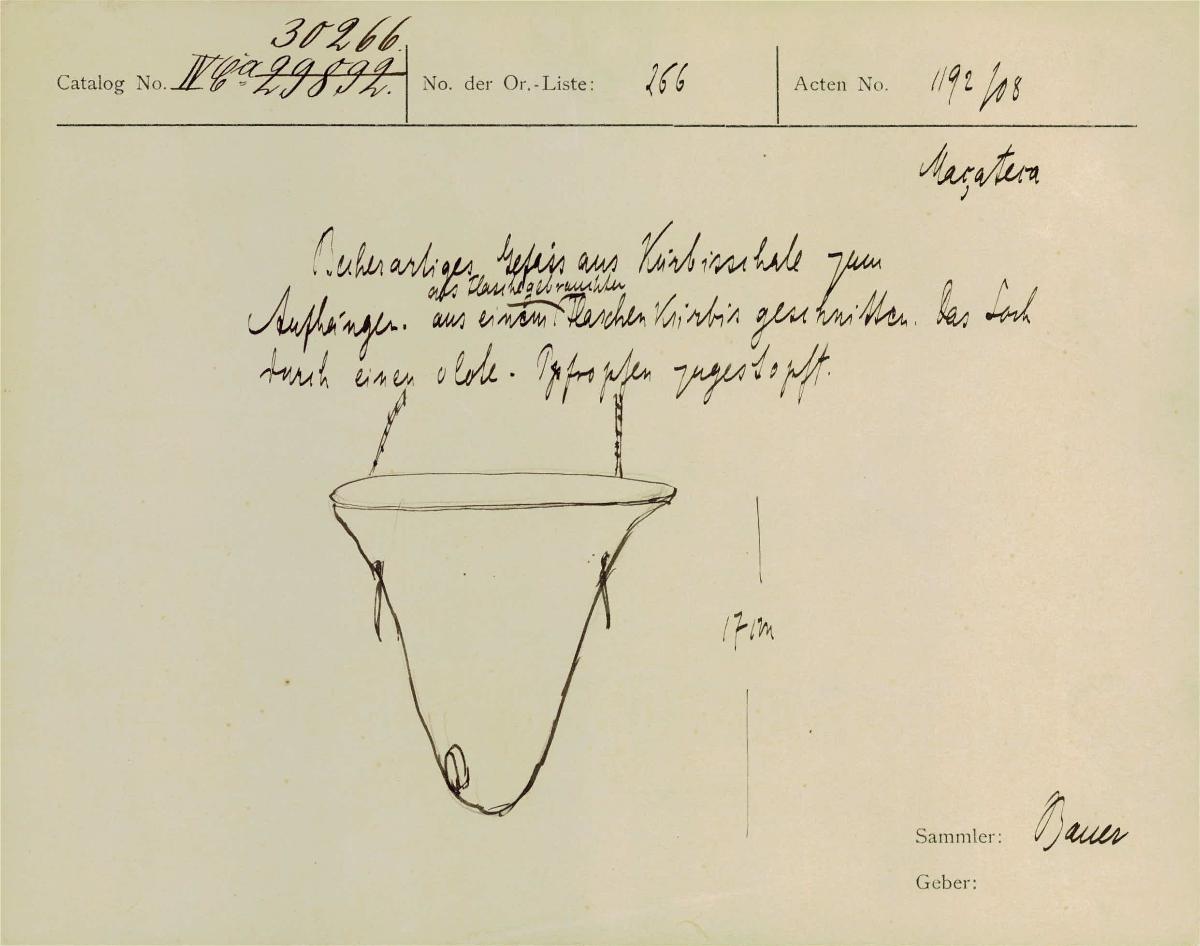 30266.
Catalog No. IV Ca 29892. No. der Or.-Liste: 266 Acten No. 1192/08
Maçateca
Becherartiges Gefäss aus Kürbisschale zum
als Flasche gebrauchter
Aufhängen. aus einem Flaschen Kürbis geschnitten. Das Loch
durch einen olote-Pfropfen zugestopft.
17 cm
Sammler: Bauer
Geber: